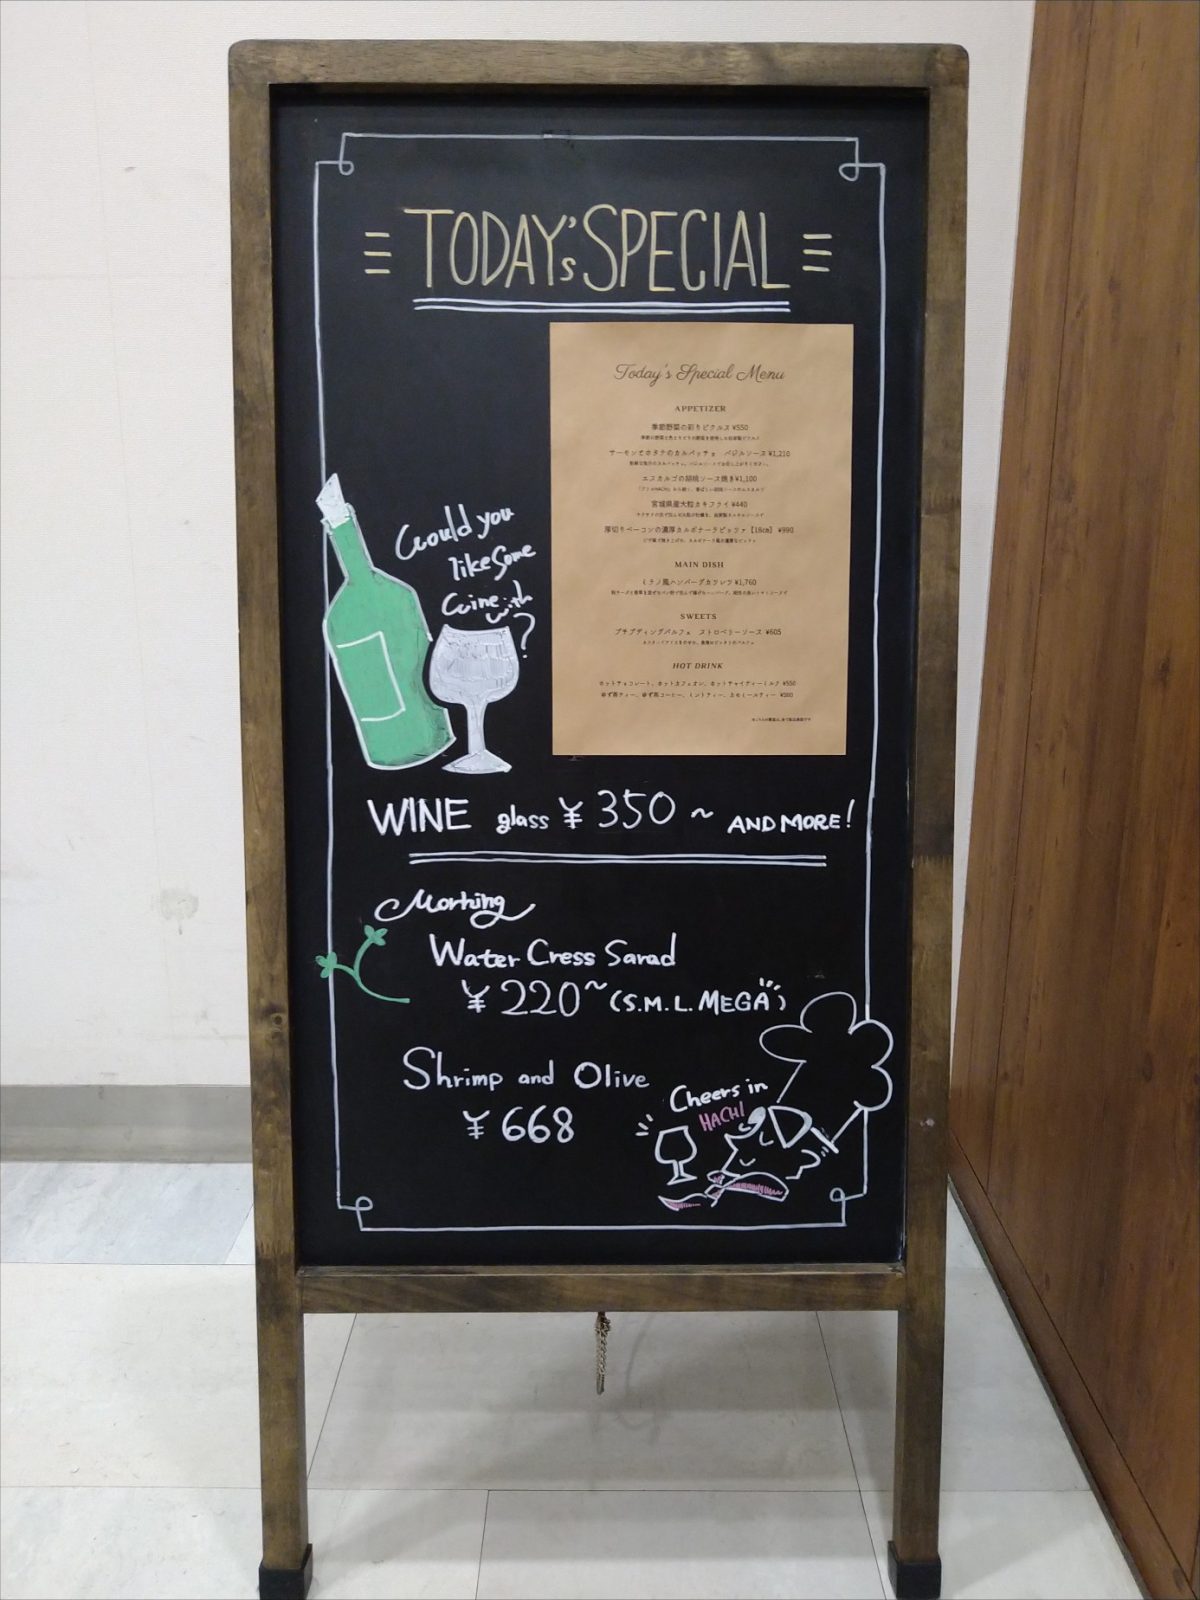 TODAY'S SPECIAL
Today's Special Menu
APPETIZER
季節野菜の彩りピクルス ¥550
サーモンとホタテのカルパッチョ バジルソース ¥1,210
エスカルゴの胡桃ソース焼き¥1,100
宮城県産大粒カキフライ ¥440
厚切りベーコンの濃厚カルボナーラピッツァ【18cm】 ¥990
MAIN DISH
ミラノ風ハンバーグカツレツ ¥1,760
SWEETS
プチプディングパルフェ ストロベリーソース ¥605
HOT DRINK
ホットチョコレート、ホットカフェオレ、ホットチャイティーミルク ¥550
ゆず茶ティー、ゆず茶コーヒー、ミントティー、カモミールティー
Would you
like Some
Wine with
?
WINE glass ¥ 350 ~ AND MORE!
Morning
Water Cress Sarad
¥ 220~ (S.M.L. MEGA)
Shrimp and Olive
¥ 668
Cheers in
HACHI